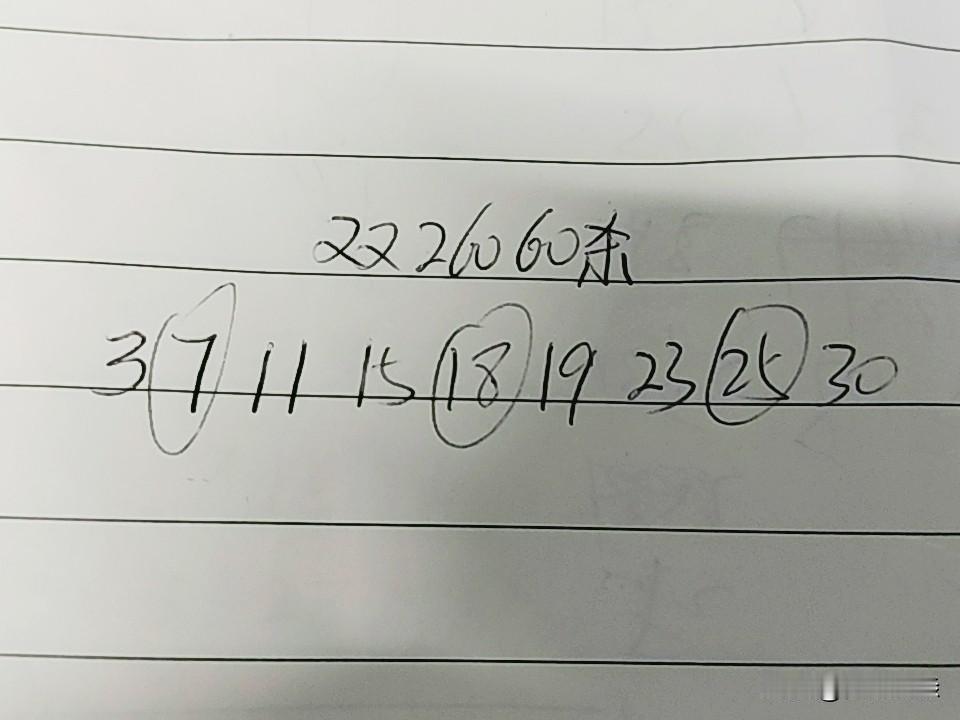 22 26 060杀
3 7 11 15 18 19 23 25 30